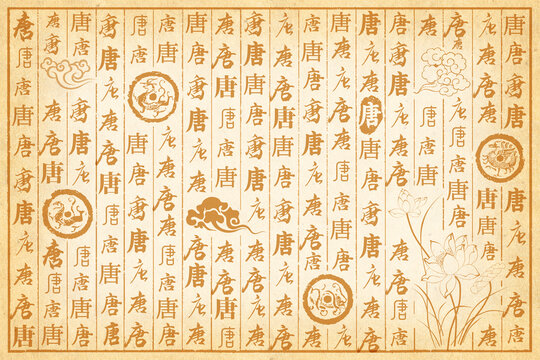 唐唐唐唐唐唐唐唐唐唐
唐唐唐唐唐唐唐唐唐唐
唐唐唐唐唐唐唐
唐唐唐唐
唐唐唐唐唐唐唐唐唐唐唐
唐唐唐唐唐唐唐唐唐唐唐唐
唐唐唐唐唐唐唐唐唐唐唐
唐唐唐唐唐唐唐唐唐唐唐
唐唐唐唐唐唐唐唐唐唐唐唐
唐唐唐唐唐唐唐唐唐唐唐
唐唐唐唐唐唐唐唐唐唐
唐唐唐唐唐唐唐唐唐唐唐
唐唐唐唐唐唐唐唐唐唐
唐唐唐唐唐唐唐唐唐唐
唐唐唐唐唐唐唐唐唐唐唐唐
唐唐唐唐唐唐唐唐唐唐
唐唐唐唐唐唐唐唐唐
唐唐唐唐唐唐唐唐唐唐唐唐